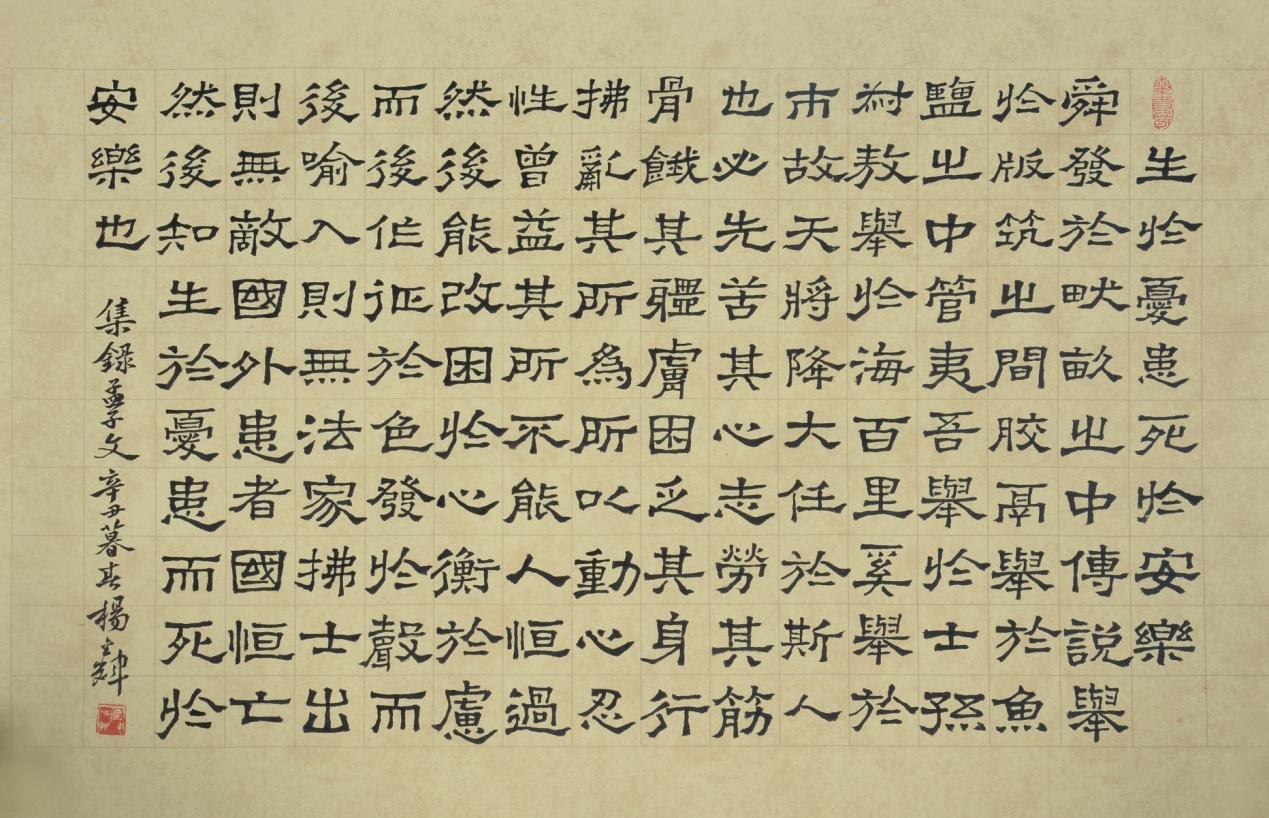 生於憂患死於安樂
舜發於畎畝之中傳說舉
於版筑之間胶鬲舉於魚
鹽之中管夷吾舉於士孫
叔敖舉於海百里奚舉於
市故天將降大任於斯人
也必先苦其心志勞其筋
骨餓其體膚困乏其身行
拂亂其所為所以動心忍
性曾益其所不能人恒過
然後能改困於心衡於慮
而後作征於色發於聲而
後喻入則無法家拂士出
則無敵國外患者國恒亡
然後知生於憂患而死於
安樂也
集録孟子文辛丑暮春楊